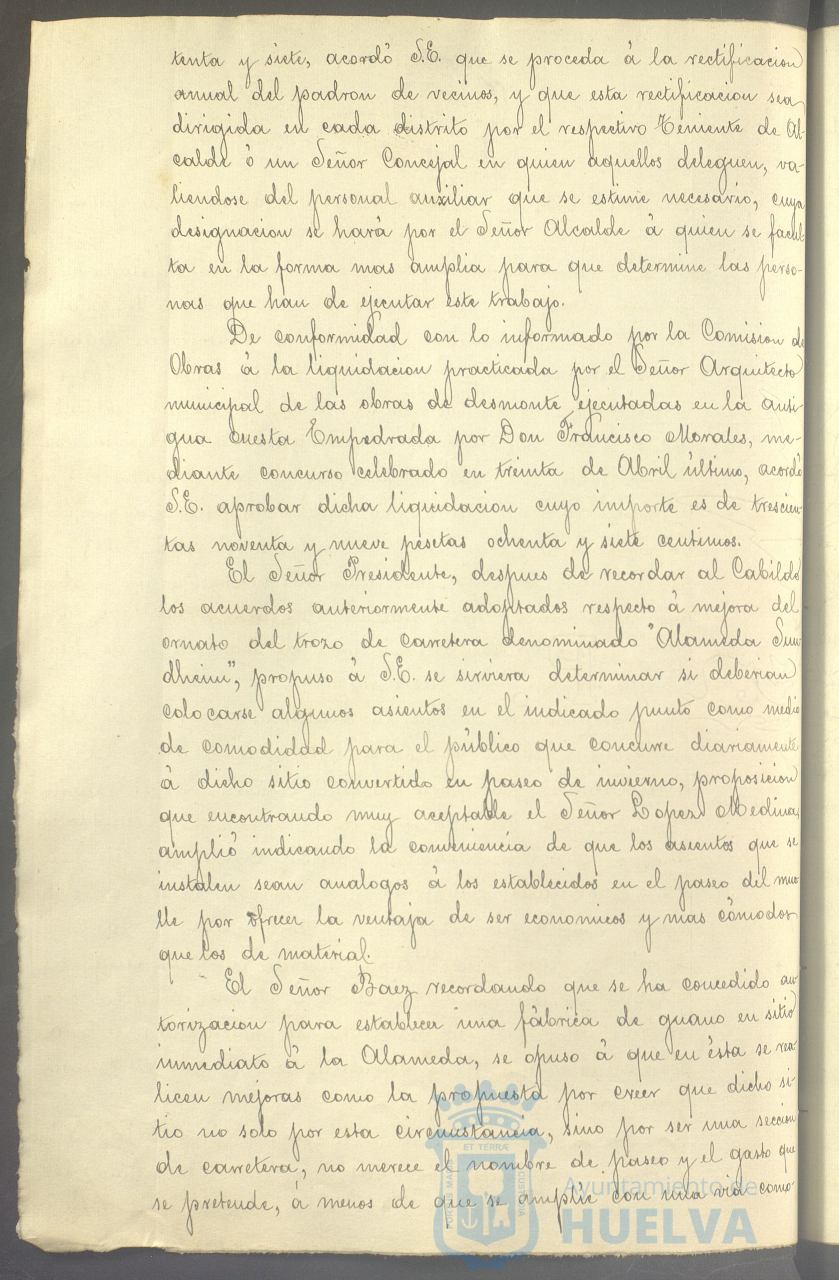 tenta y siete, acordó S.E. que se proceda á la rectificacion
anual del padron de vecinos, y que esta rectificacion sea
dirigida en cada distrito por el respectivo Teniente de Al-
calde ó un Señor Concejal en quien aquellos deleguen, va-
liendose del personal auxiliar que se estime necesario, cuya
designacion se hará por el Señor Alcalde á quien se facul-
ta en la forma mas amplia para que determine las perso-
nas que han de ejecutar este trabajo.
De conformidad con lo informado por la Comision de
Obras á la liquidacion practicada por el Señor Arquitecto
municipal de las obras de desmonte ejecutadas en la anti-
gua cuesta Empedrada por Don Francisco Morales, me-
diante concurso celebrado en treinta de Abril último, acordó
S.E. aprobar dicha liquidacion cuyo importe es de trescien-
tas noventa y nueve pesetas ochenta y siete centimos.
El Señor Presidente, despues de recordar al Cabildo
los acuerdos anteriormente adoptados respecto á mejora del
ornato del trozo de carretera denominado "Alameda Sun-
dheim", propuso á S.E. se sirviera determinar si deberian
colocarse algunos asientos en el indicado punto como medio
de comodidad para el público que concurre diariamente
á dicho sitio convertido en paseo de invierno, proposicion
que encontrando muy aceptable el Señor Lopez Medina,
amplió indicando la conveniencia de que los asientos que se
instalen sean analogos á los establecidos en el paseo del mue-
lle por ofrecer la ventaja de ser economicos y mas cómodos
que los de material.
El Señor Baez recordando que se ha concedido au-
torizacion para establecer una fábrica de guano en sitio
inmediato á la Alameda, se opuso á que en ésta se rea-
licen mejoras como la propuesta por creer que dicho si-
tio no solo por esta circunstancia, sino por ser una seccion
de carretera, no merece el nombre de paseo y el gasto que
se pretende, á menos de que se amplíe con una via como-
ET TERRÆ
Ayuntamiento de
HUELVA